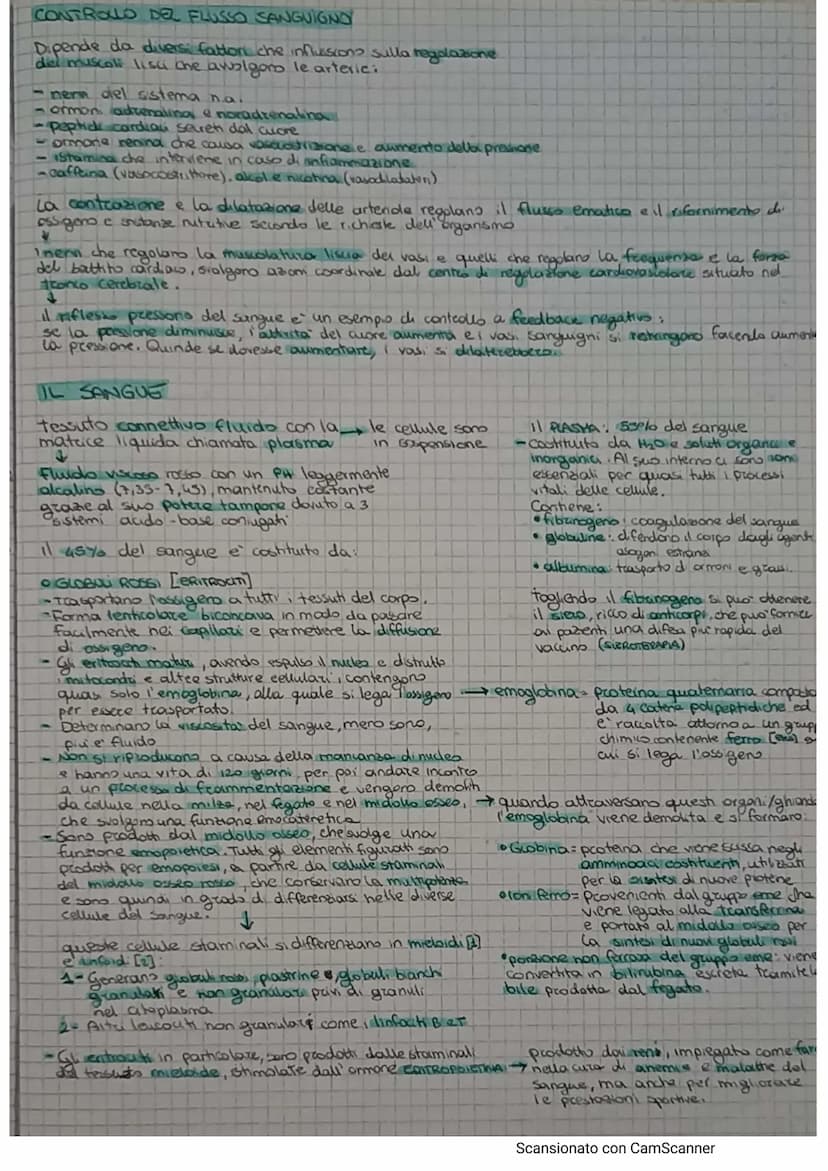 CONTROLLO DEL FLUSSO SANGUIGNO
Dipende da diversi fattori che influiscono sulla regolazione
dei muscoli lisci che avvolgono le arterie:
- nervi del sistema n.a.
- ormoni adrenalina e noradrenalina
- peptidi cardiaci secreti dal cuore
- ormone renina che causa vasocostrizione e aumento della pressione
- istamina che interviene in caso di infiammazione
- caffeina (vasocostrittore), alcol e nicotina (vasodilatatori)
La contrazione e la dilatazione delle arteriole regolano il flusso ematico e il rifornimento di
ossigeno e sostanze nutritive secondo le richieste dell'organismo
↓
I nervi che regolano la muscolatura liscia dei vasi e quelli che regolano la frequenza e la forza
del battito cardiaco, svolgono azioni coordinate dal centro di regolazione cardiovascolare situato nel
tronco cerebrale.
↓
il riflesso pressorio del sangue e' un esempio di controllo a feedback negativo:
se la pressione diminuisce, l'attivita' del cuore aumenta e i vasi sanguigni si restringono facendo aument
la pressione. Quinde se dovesse aumentare, i vasi si dilaterebbero.
IL SANGUE
tessuto connettivo fluido con la → le cellule sono
matrice liquida chiamata plasma in sospensione
↓
Fluido viscoso rosso con un PH leggermente
alcalino (7,35-7,45), mantenuto costante
grazie al suo potere tampone dovuto a 3
sistemi acido-base coniugati
il 45% del sangue e' costituito da:
o GLOBULI ROSSI [ERITROCITI]
- Trasportano l'ossigeno a tutti i tessuti del corpo.
- Forma lenticolare biconcava in modo da passare
facilmente nei capillari e permettere la diffusione
di ossigeno.
- Gli eritrociti maturi, avendo espulso il nucleo e distrutto
i mitocondri e altre strutture cellulari, contengono
quasi solo l'emoglobina, alla quale si lega l'ossigeno →
per essere trasportato.
- Determinano la viscosita' del sangue, meno sono,
piu' e' fluido
- Non si riproducono a causa della mancanza di nucleo
e hanno una vita di 120 giorni, per poi andare incontro
a un processo di frammentazione e vengono demoliti
da cellule nella milza, nel fegato e nel midollo osseo, →
che svolgono una funzione emocateretica
- Sono prodotti dal midollo osseo, che svolge una
funzione emopoietica. Tutti gli elementi figurati sono
prodotti per emopoiesi, a partire da cellule staminali
del midollo osseo rosso, che conservano la multipotente
e sono quindi in grado di differenziarsi nelle diverse
cellule del sangue. ↓
queste cellule staminali si differenziano in mieloidi [1]
e linfoidi [2]:
1- Generano globuli rossi, piastrine e globuli bianchi
granulari e non granulari privi di granuli
nel citoplasma
2- Altri leucociti non granulari come i linfociti B e T
- Gli eritrociti in particolare, sono prodotti dalle staminali
del tessuto mieloide, stimolate dall'ormone →
il PLASMA: 55% del sangue
- costituito da H₂O e soluti organici e
inorganici. Al suo interno ci sono ioni
essenziali per quasi tutti i processi
vitali delle cellule.
Contiene:
• fibrinogeno: coagulazione del sangue
• globuline: difendono il corpo dagli agenti
estranei
• albumina: trasporto di ormoni e grassi.
togliendo il fibrinogeno si puo' ottenere
il siero, ricco di anticorpi, che puo' fornire
ai pazienti una difesa piu' rapida del
vaccino (SIEROTERAPIA)
emoglobina = proteina quaternaria composta
da 4 catene polipeptidiche ed
e' raccolta attorno a un grupp
chimico contenente ferro [eme] a
cui si lega l'ossigeno
quando attraversano questi organi/ghiand
l'emoglobina viene demolita e si formano:
• Globina = proteina che viene scissa negli
amminoacidi costituenti, utilizzati
per la sintesi di nuove proteine
• Ioni ferro = Provenienti dal gruppo eme che
viene legato alla transferrina
e portato al midollo osseo per
la sintesi di nuovi globuli rossi
• porzione non ferrosa del gruppo eme: viene
convertita in bilirubina escreta tramite la
bile prodotta dal fegato.
prodotto dai reni, impiegato come far
nella cura di anemie e malattie del
sangue, ma anche per migliorare
le prestazioni sportive.
Scansionato con CamScanner